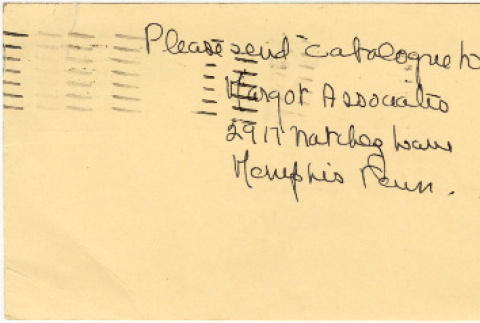 Please send catalogue to
Margot Associates
2917 Natchez Lane
Memphis Tenn.